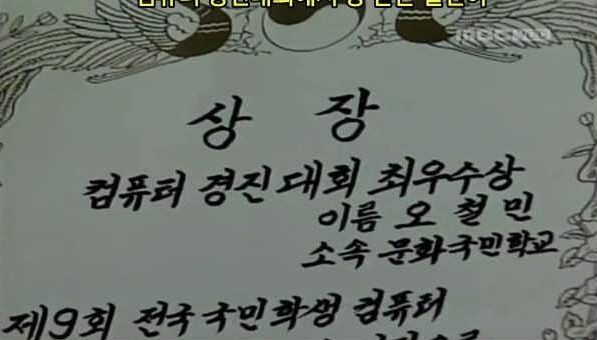 상 장
컴퓨터 경진대회 최우수상
이름 오 철 민
소속 문화국민학교
제9회 전국 국민학생 컴퓨터